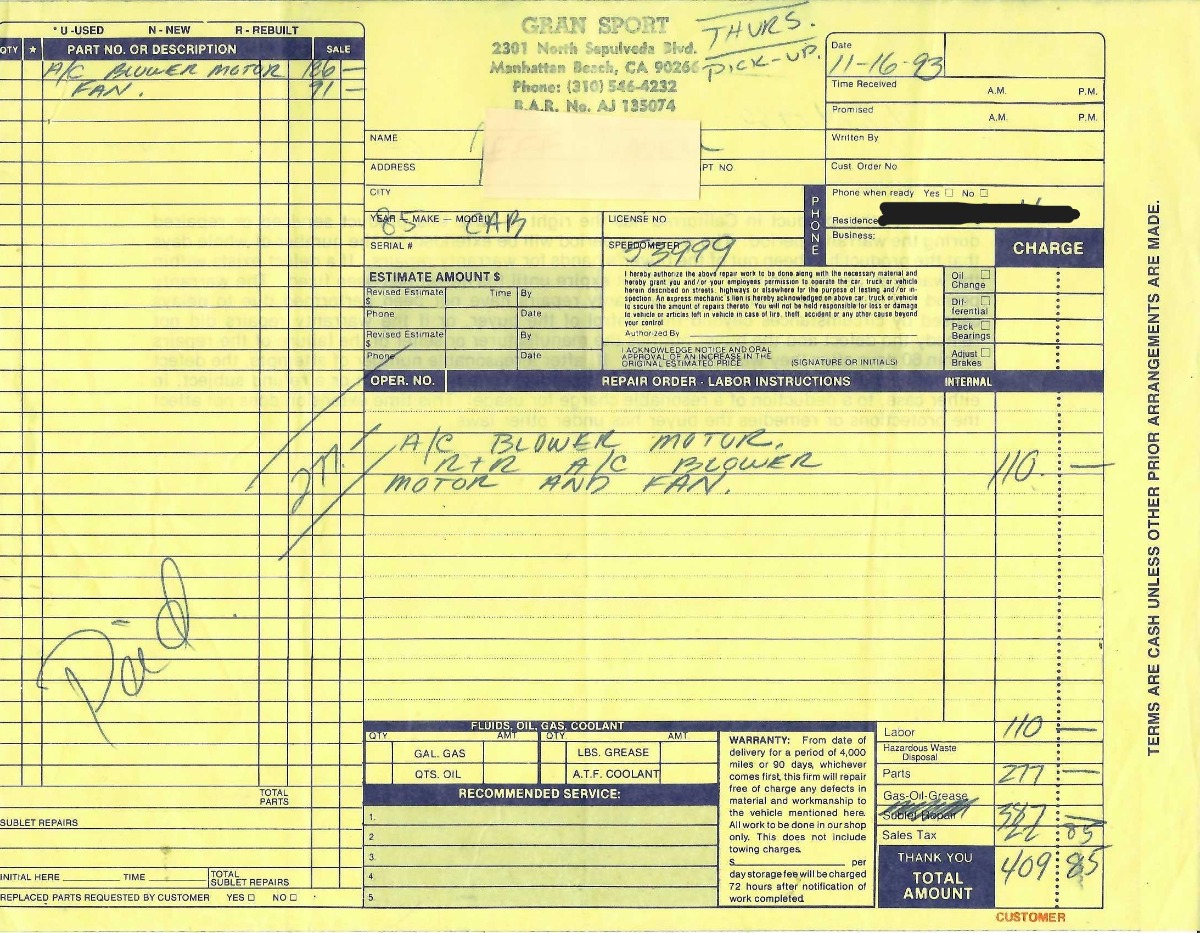 * U -USED N - NEW R - REBUILT
QTY * PART NO. OR DESCRIPTION SALE
A/C BLOWER MOTOR 186 —
FAN. 91 —
GRAN SPORT
2301 North Sepulveda Blvd.
Manhattan Beach, CA 90266
Phone: (310) 546-4232
B.A.R. No. AJ 135074
THURS.
PICK-UP.
Date
11-16-93
Time Received A.M. P.M.
Promised A.M. P.M.
Written By
Cust. Order No.
NAME
ADDRESS PT NO
CITY
Phone when ready Yes No
PHONE
Residence
Business:
YEAR — MAKE — MODEL
85 CAB
LICENSE NO.
SERIAL #
SPEEDOMETER
53999
CHARGE
ESTIMATE AMOUNT $
Revised Estimate Time By
$
Phone Date
Revised Estimate By
$
Phone Date
I hereby authorize the above repair work to be done along with the necessary material and
hereby grant you and/or your employees permission to operate the car, truck or vehicle
herein described on streets, highways or elsewhere for the purpose of testing and/or in-
spection. An express mechanic's lien is hereby acknowledged on above car, truck or vehicle
to secure the amount of repairs thereto. You will not be held responsible for loss or damage
to vehicle or articles left in vehicle in case of fire, theft, accident or any other cause beyond
your control
Authorized By
I ACKNOWLEDGE NOTICE AND ORAL
APPROVAL OF AN INCREASE IN THE
ORIGINAL ESTIMATED PRICE (SIGNATURE OR INITIALS)
Oil Change
Dif-ferential
Pack Bearings
Adjust Brakes
OPER. NO. REPAIR ORDER - LABOR INSTRUCTIONS INTERNAL
A/C BLOWER MOTOR.
R+R A/C BLOWER
MOTOR AND FAN. 110. —
277.
Paid
FLUIDS, OIL, GAS, COOLANT
QTY AMT QTY AMT
GAL. GAS LBS. GREASE
QTS. OIL A.T.F. COOLANT
RECOMMENDED SERVICE:
1.
2
3.
4.
5.
WARRANTY: From date of
delivery for a period of 4,000
miles or 90 days, whichever
comes first, this firm will repair
free of charge any defects in
material and workmanship to
the vehicle mentioned here.
All work to be done in our shop
only. This does not include
towing charges.
$ per
day storage fee will be charged
72 hours after notification of
work completed.
Labor 110 —
Hazardous Waste
Disposal
Parts 277 —
Gas-Oil-Grease
Sublet Repair 387 —
Sales Tax 22 85
THANK YOU
TOTAL
AMOUNT 409 85
CUSTOMER
TOTAL
PARTS
SUBLET REPAIRS
INITIAL HERE TIME TOTAL
SUBLET REPAIRS
REPLACED PARTS REQUESTED BY CUSTOMER YES NO
TERMS ARE CASH UNLESS OTHER PRIOR ARRANGEMENTS ARE MADE.